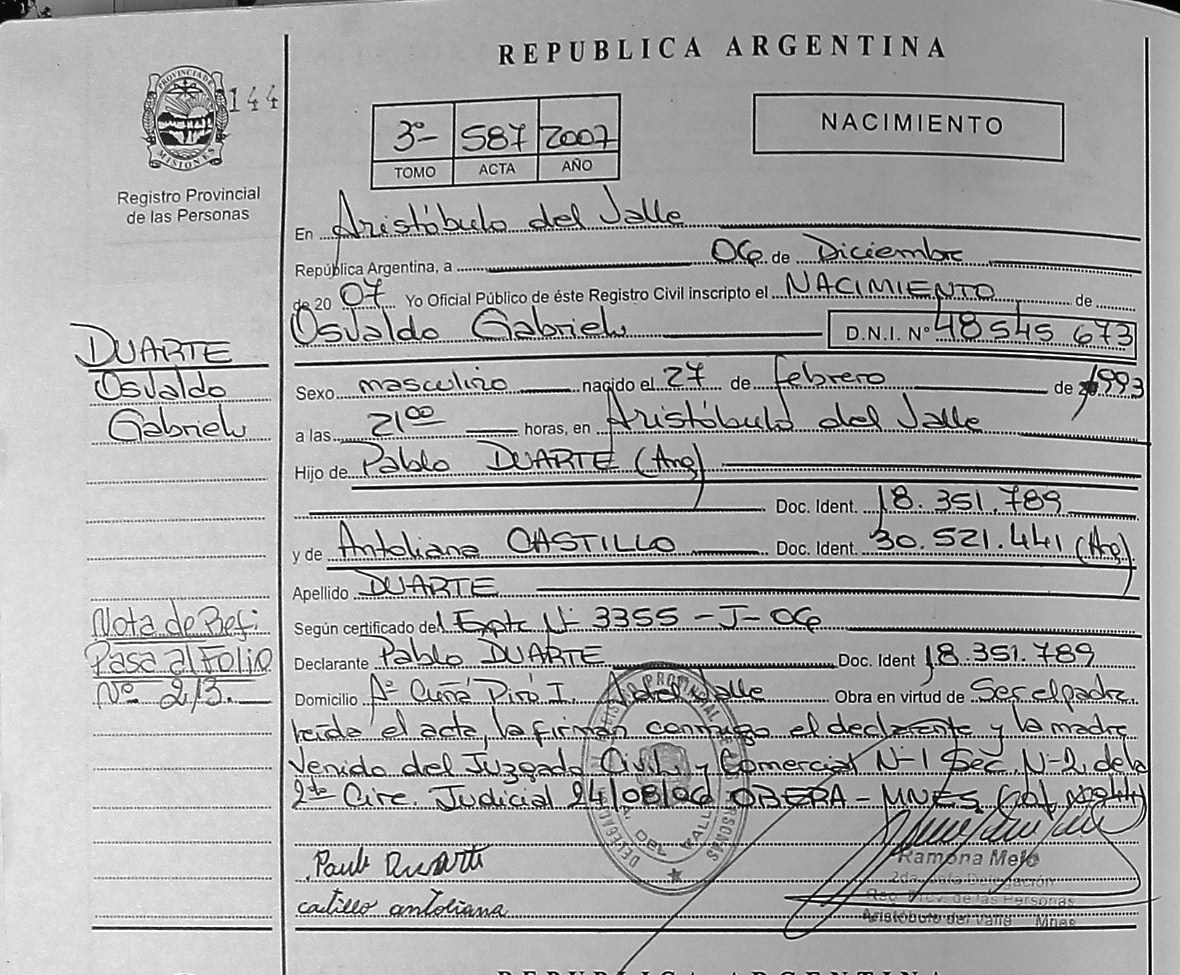 REPUBLICA ARGENTINA
PROVINCIA DE
MISIONES
144
Registro Provincial
de las Personas
3º 587 2007
TOMO ACTA AÑO
NACIMIENTO
En Aristóbulo del Valle
República Argentina, a 06 de Diciembre
de 20 07 Yo Oficial Público de éste Registro Civil inscripto el NACIMIENTO de
Osvaldo Gabriel D.N.I. Nº 48 545 673
DUARTE
Osvaldo
Gabriel
Sexo masculino nacido el 27 de febrero de 1993
a las 21 00 horas, en Aristóbulo del Valle
Hijo de Pablo DUARTE (Arg)
Doc. Ident. 18.351.789
y de Antoliana CASTILLO Doc. Ident. 30.521.441 (Arg)
Apellido DUARTE
Según certificado del Expte Nº 3355 - J - 06
Declarante Pablo DUARTE Doc. Ident 18.351.789
Domicilio Aº Cuñá Pirú I. A. del Valle Obra en virtud de Ser el padre
leída el acta, la firman conmigo el declarante y la madre
Venido del Juzgado Civil y Comercial Nº 1 Sec. Nº 2 de la
2da Circ. Judicial 24/08/06 OBERA - MNES
Nota de Refi
Pasa al Folio
Nº 213.
DEL VALLE
Duarte
castillo antoliana
Ramona Melo
2da Jefa Delegación
Reg. Prov. de las Personas
Aristóbulo del Valle Mnes
REPUBLICA ARGENTINA